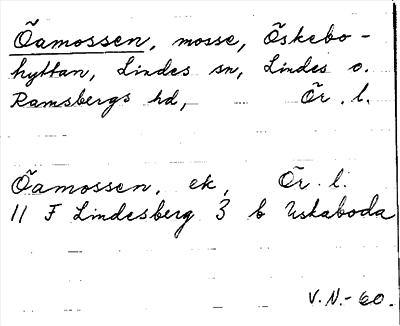 Öamossen, mosse, Öskebo-
hyttan, Lindes sn, Lindes o.
Ramsbergs hd, Ör. l.
Öamossen, ek, Ör. l.
11 F Lindesberg 3 b Uskaboda
V.N.-60.